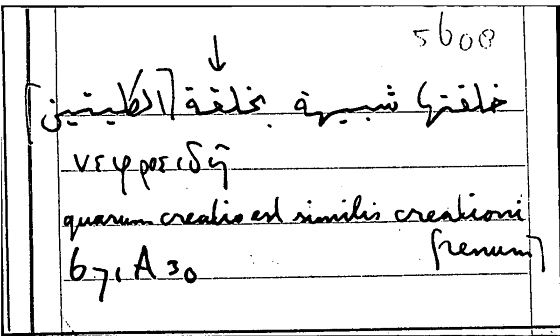 5608
↓
خلقتها شبيهة بخلقة [الكليتين]
νεφροειδῆ
quarum creatio est similis creationi
[renum]
671 A 30